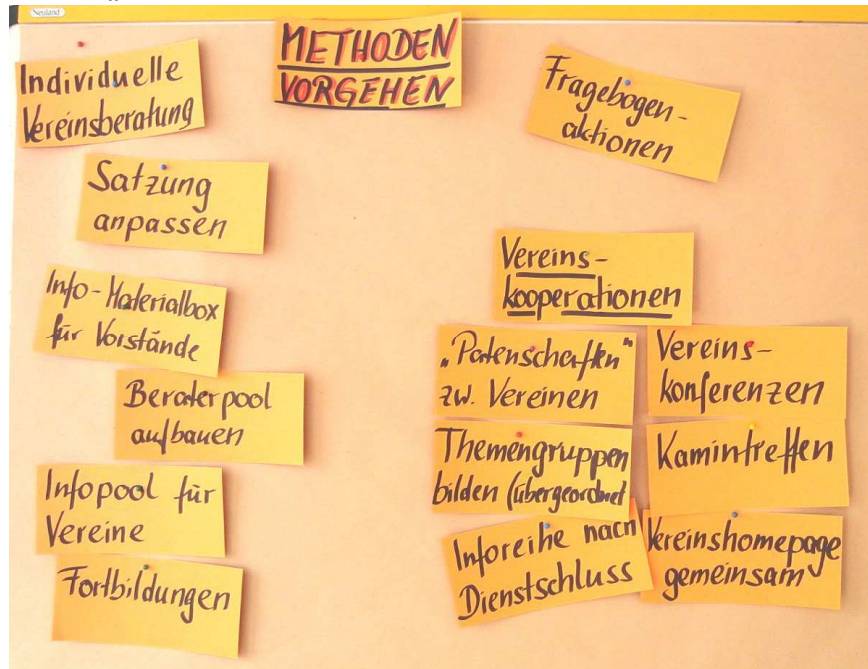 Neuland
METHODEN
VORGEHEN
Individuelle
Vereinsberatung
Satzung
anpassen
Info-Materialbox
für Vorstände
Beraterpool
aufbauen
Infopool für
Vereine
Fortbildungen
Fragebogen-
aktionen
Vereins-
kooperationen
„Patenschaften"
zw. Vereinen
Themengruppen
bilden (übergeordnet
Inforeihe nach
Dienstschluss
Vereins-
konferenzen
Kamintreffen
Vereinshomepage
gemeinsam